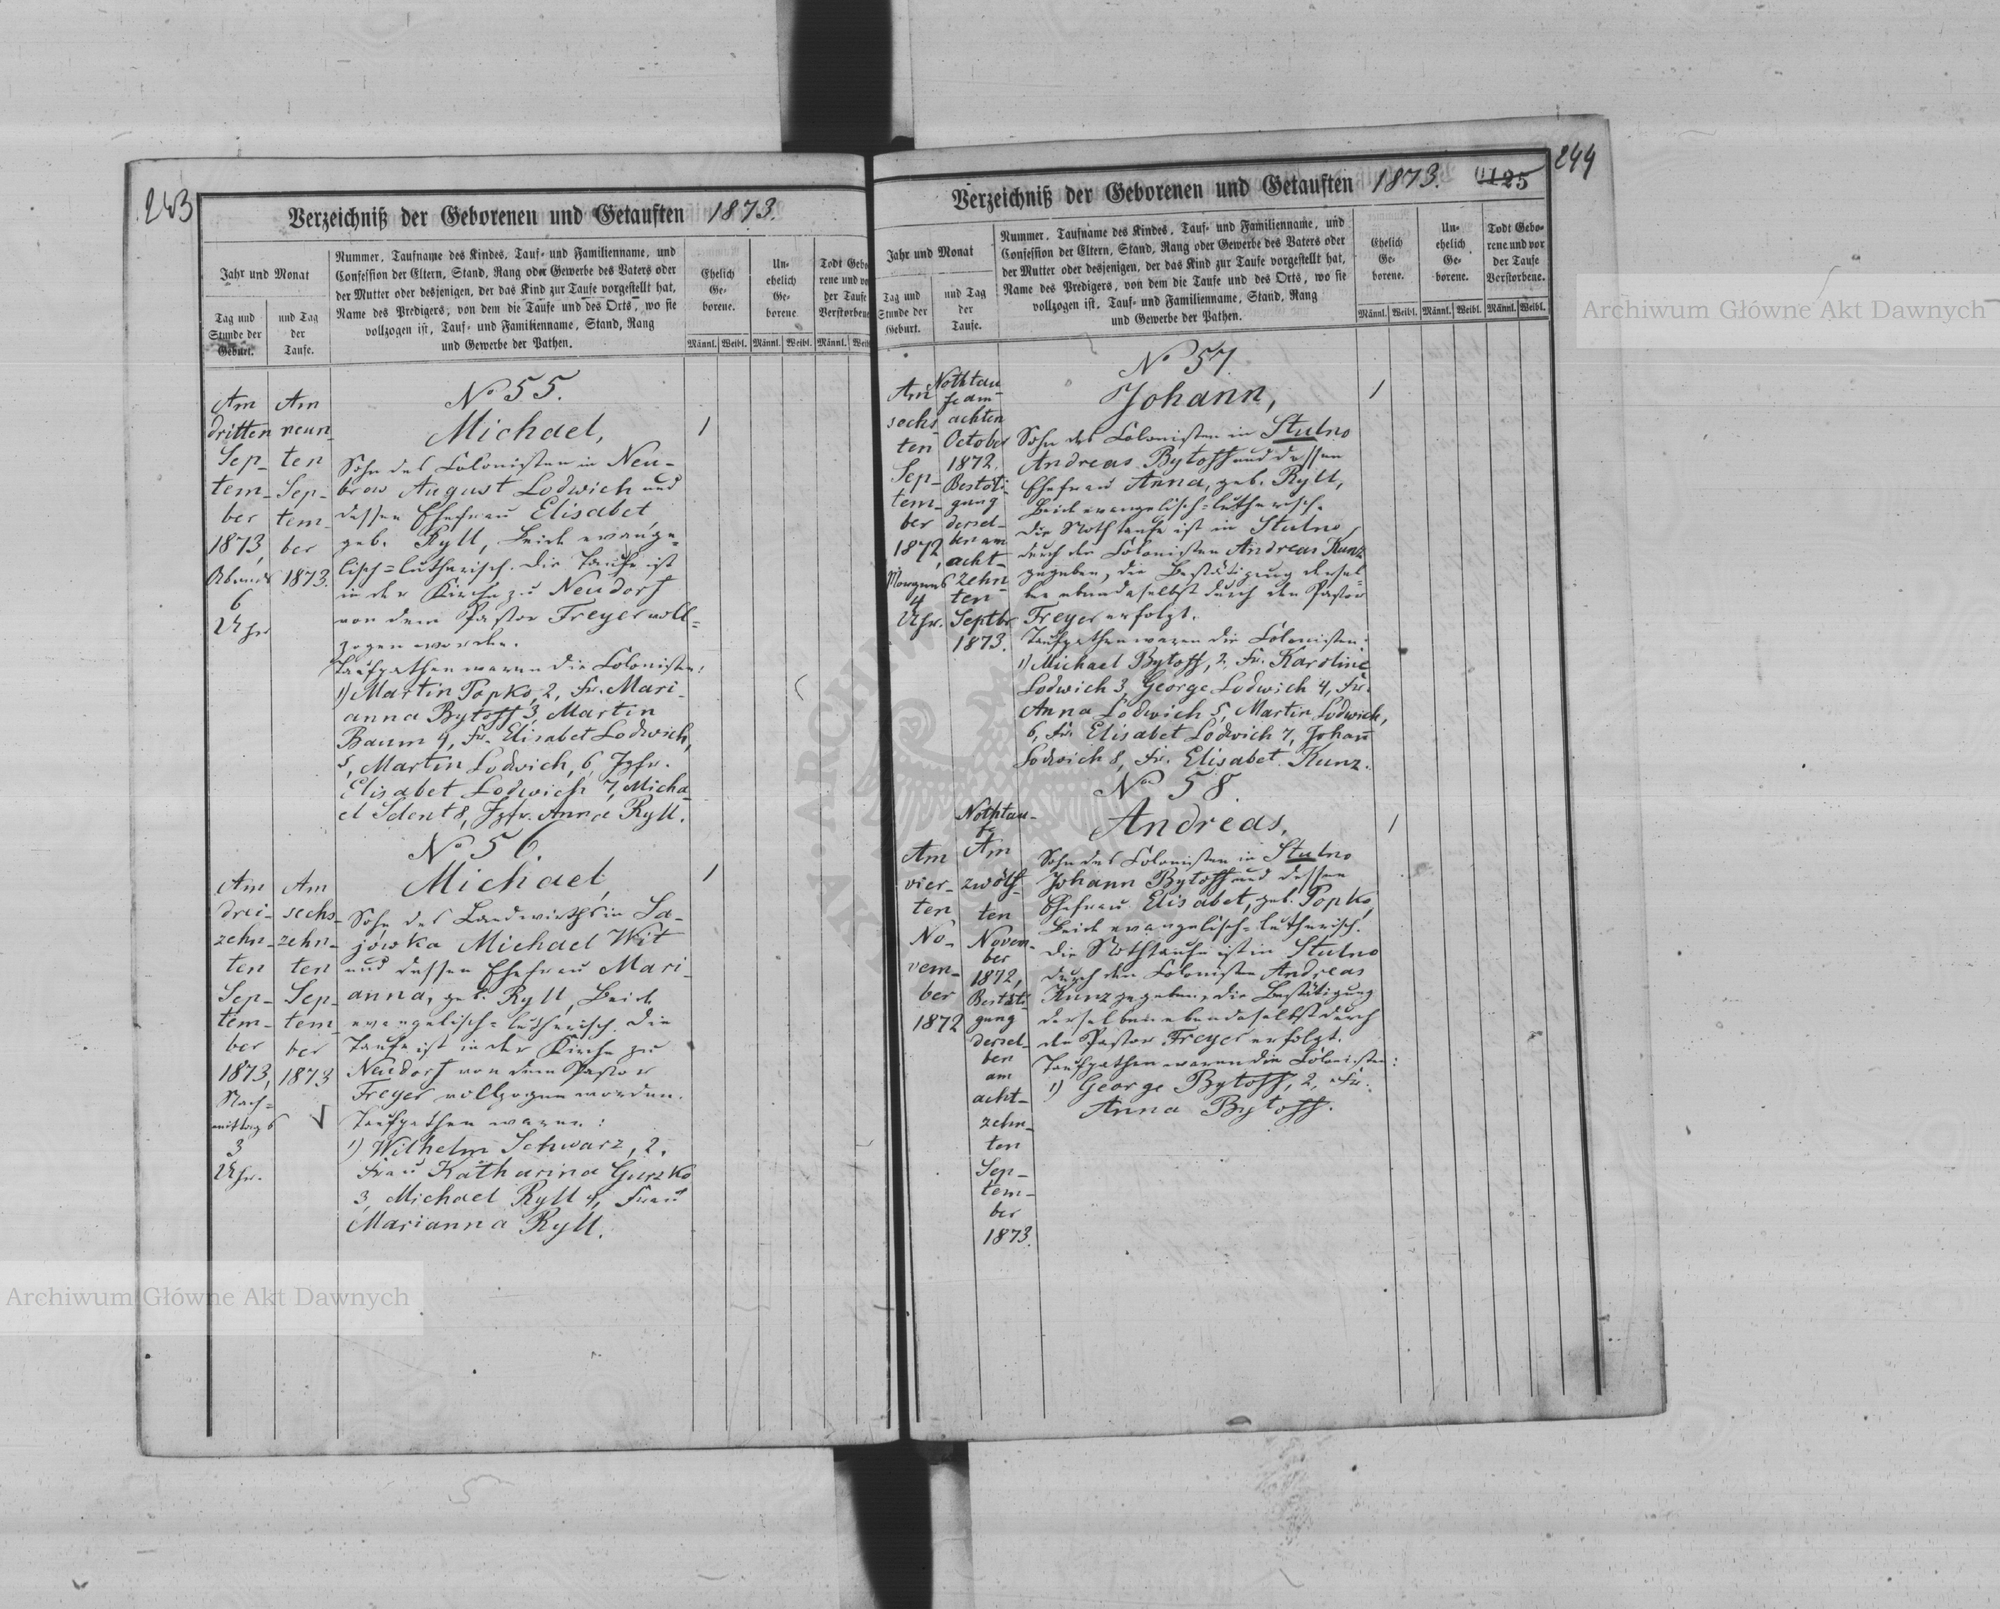 243
Verzeichniß der Geborenen und Getauften 1873.
Jahr und Monat
Tag und Stunde der Geburt.
und Tag der Taufe.
Nummer, Taufname des Kindes, Tauf- und Familienname, und
Confession der Eltern, Stand, Rang oder Gewerbe des Vaters oder
der Mutter oder desjenigen, der das Kind zur Taufe vorgestellt hat,
Name des Predigers, von dem die Taufe und des Orts, wo sie
vollzogen ist, Tauf- und Familienname, Stand, Rang
und Gewerbe der Pathen.
Ehelich Ge- borene.
Un- ehelich Ge- borene.
Todt Gebo- rene und vor der Taufe Verstorbene
Männl. Weibl. Männl. Weibl. Männl. Weib
Am
dritten
Sep-
tem-
ber
1873,
Abends
6
Uhr
Am
neun-
ten
Sep-
tem-
ber
1873.
No 55.
Michael, 1
Sohn des Colonisten in Neu-
brow August Lodwich und
dessen Ehefrau Elisabet,
geb. Ryll, Beide evange-
lisch-lutherisch. Die Taufe ist
in der Kirche zu Neudorf
von dem Pastor Freyer voll-
zogen worden.
Taufpathen waren die Colonisten:
1) Martin Popko, 2, Fr. Mari-
anna Bytoff 3, Martin
Baum 4, Fr. Elisabet Lodwich,
5, Martin Lodwich, 6, Jgfr.
Elisabet Lodwich 7, Micha-
el Selent 8, Jgfr. Anna Ryll.
Am
drei-
zehn-
ten
Sep-
tem-
ber
1873,
Nach-
mittags
3
Uhr.
Am
sechs-
zehn-
ten
Sep-
tem-
ber
1873
No 56
Michael, 1
Sohn des Landwirths in Sa-
jowka Michael Wit
und dessen Ehefrau Mari-
anna, geb. Ryll, Beide
evangelisch-lutherisch. Die
Taufe ist in der Kirche zu
Neudorf von dem Pastor
Freyer vollzogen worden.
Taufpathen waren:
1) Wilhelm Schwarz, 2,
Frau Katharina Gurzko
3, Michael Ryll 4, Frau
Marianna Ryll.
244
Verzeichniß der Geborenen und Getauften 1873. 125
Jahr und Monat
Tag und Stunde der Geburt.
und Tag der Taufe.
Nummer, Taufname des Kindes, Tauf- und Familienname, und
Confession der Eltern, Stand, Rang oder Gewerbe des Vaters oder
der Mutter oder desjenigen, der das Kind zur Taufe vorgestellt hat,
Name des Predigers, von dem die Taufe und des Orts, wo sie
vollzogen ist, Tauf- und Familienname, Stand, Rang
und Gewerbe der Pathen.
Ehelich Ge- borene.
Un- ehelich Ge- borene.
Todt Gebo- rene und vor der Taufe Verstorbene.
Männl. Weibl. Männl. Weibl. Männl. Weibl.
Am
sechs-
ten
Sep-
tem-
ber
1872,
Morgens
4
Uhr.
Nothtau-
fe am
achten
October
1872,
Bestäti-
gung
dersel-
ben am
acht-
zehn-
ten
Septbr
1873.
No 57.
Johann, 1
Sohn des Colonisten in Stulno
Andreas Bytoff und dessen
Ehefrau Anna, geb. Ryll,
Beide evangelisch-lutherisch.
Die Nothtaufe ist in Stulno
durch den Colonisten Andreas Kunz
gegeben, die Bestätigung dersel-
ben ebendaselbst durch den Pastor
Freyer erfolgt.
Taufpathen waren die Colonisten:
1) Michael Bytoff, 2, Fr. Karoline
Lodwich 3, George Lodwich 4, Fr.
Anna Lodwich 5, Martin Lodwich,
6, Fr. Elisabet Lodwich 7, Johan̄
Lodwich 8, Fr. Elisabet Kunz.
Am
vier-
ten
No-
vem-
ber
1872
Nothtau-
fe
Am
zwölf-
ten
Novem-
ber
1872,
Bestäti-
gung
dersel-
ben
am
acht-
zehn-
ten
Sep-
tem-
ber
1873.
No 58.
Andreas, 1
Sohn des Colonisten in Stulno
Johann Bytoff und dessen
Ehefrau Elisabet, geb. Popko,
Beide evangelisch-lutherisch.
Die Nothtaufe ist in Stulno
durch den Colonisten Andreas
Kunz gegeben, die Bestätigung
derselben ebendaselbst durch
den Pastor Freyer erfolgt.
Taufpathen waren die Colonisten:
1) George Bytoff, 2, Fr.
Anna Bytoff.
Archiwum Główne Akt Dawnych
Archiwum Główne Akt Dawnych